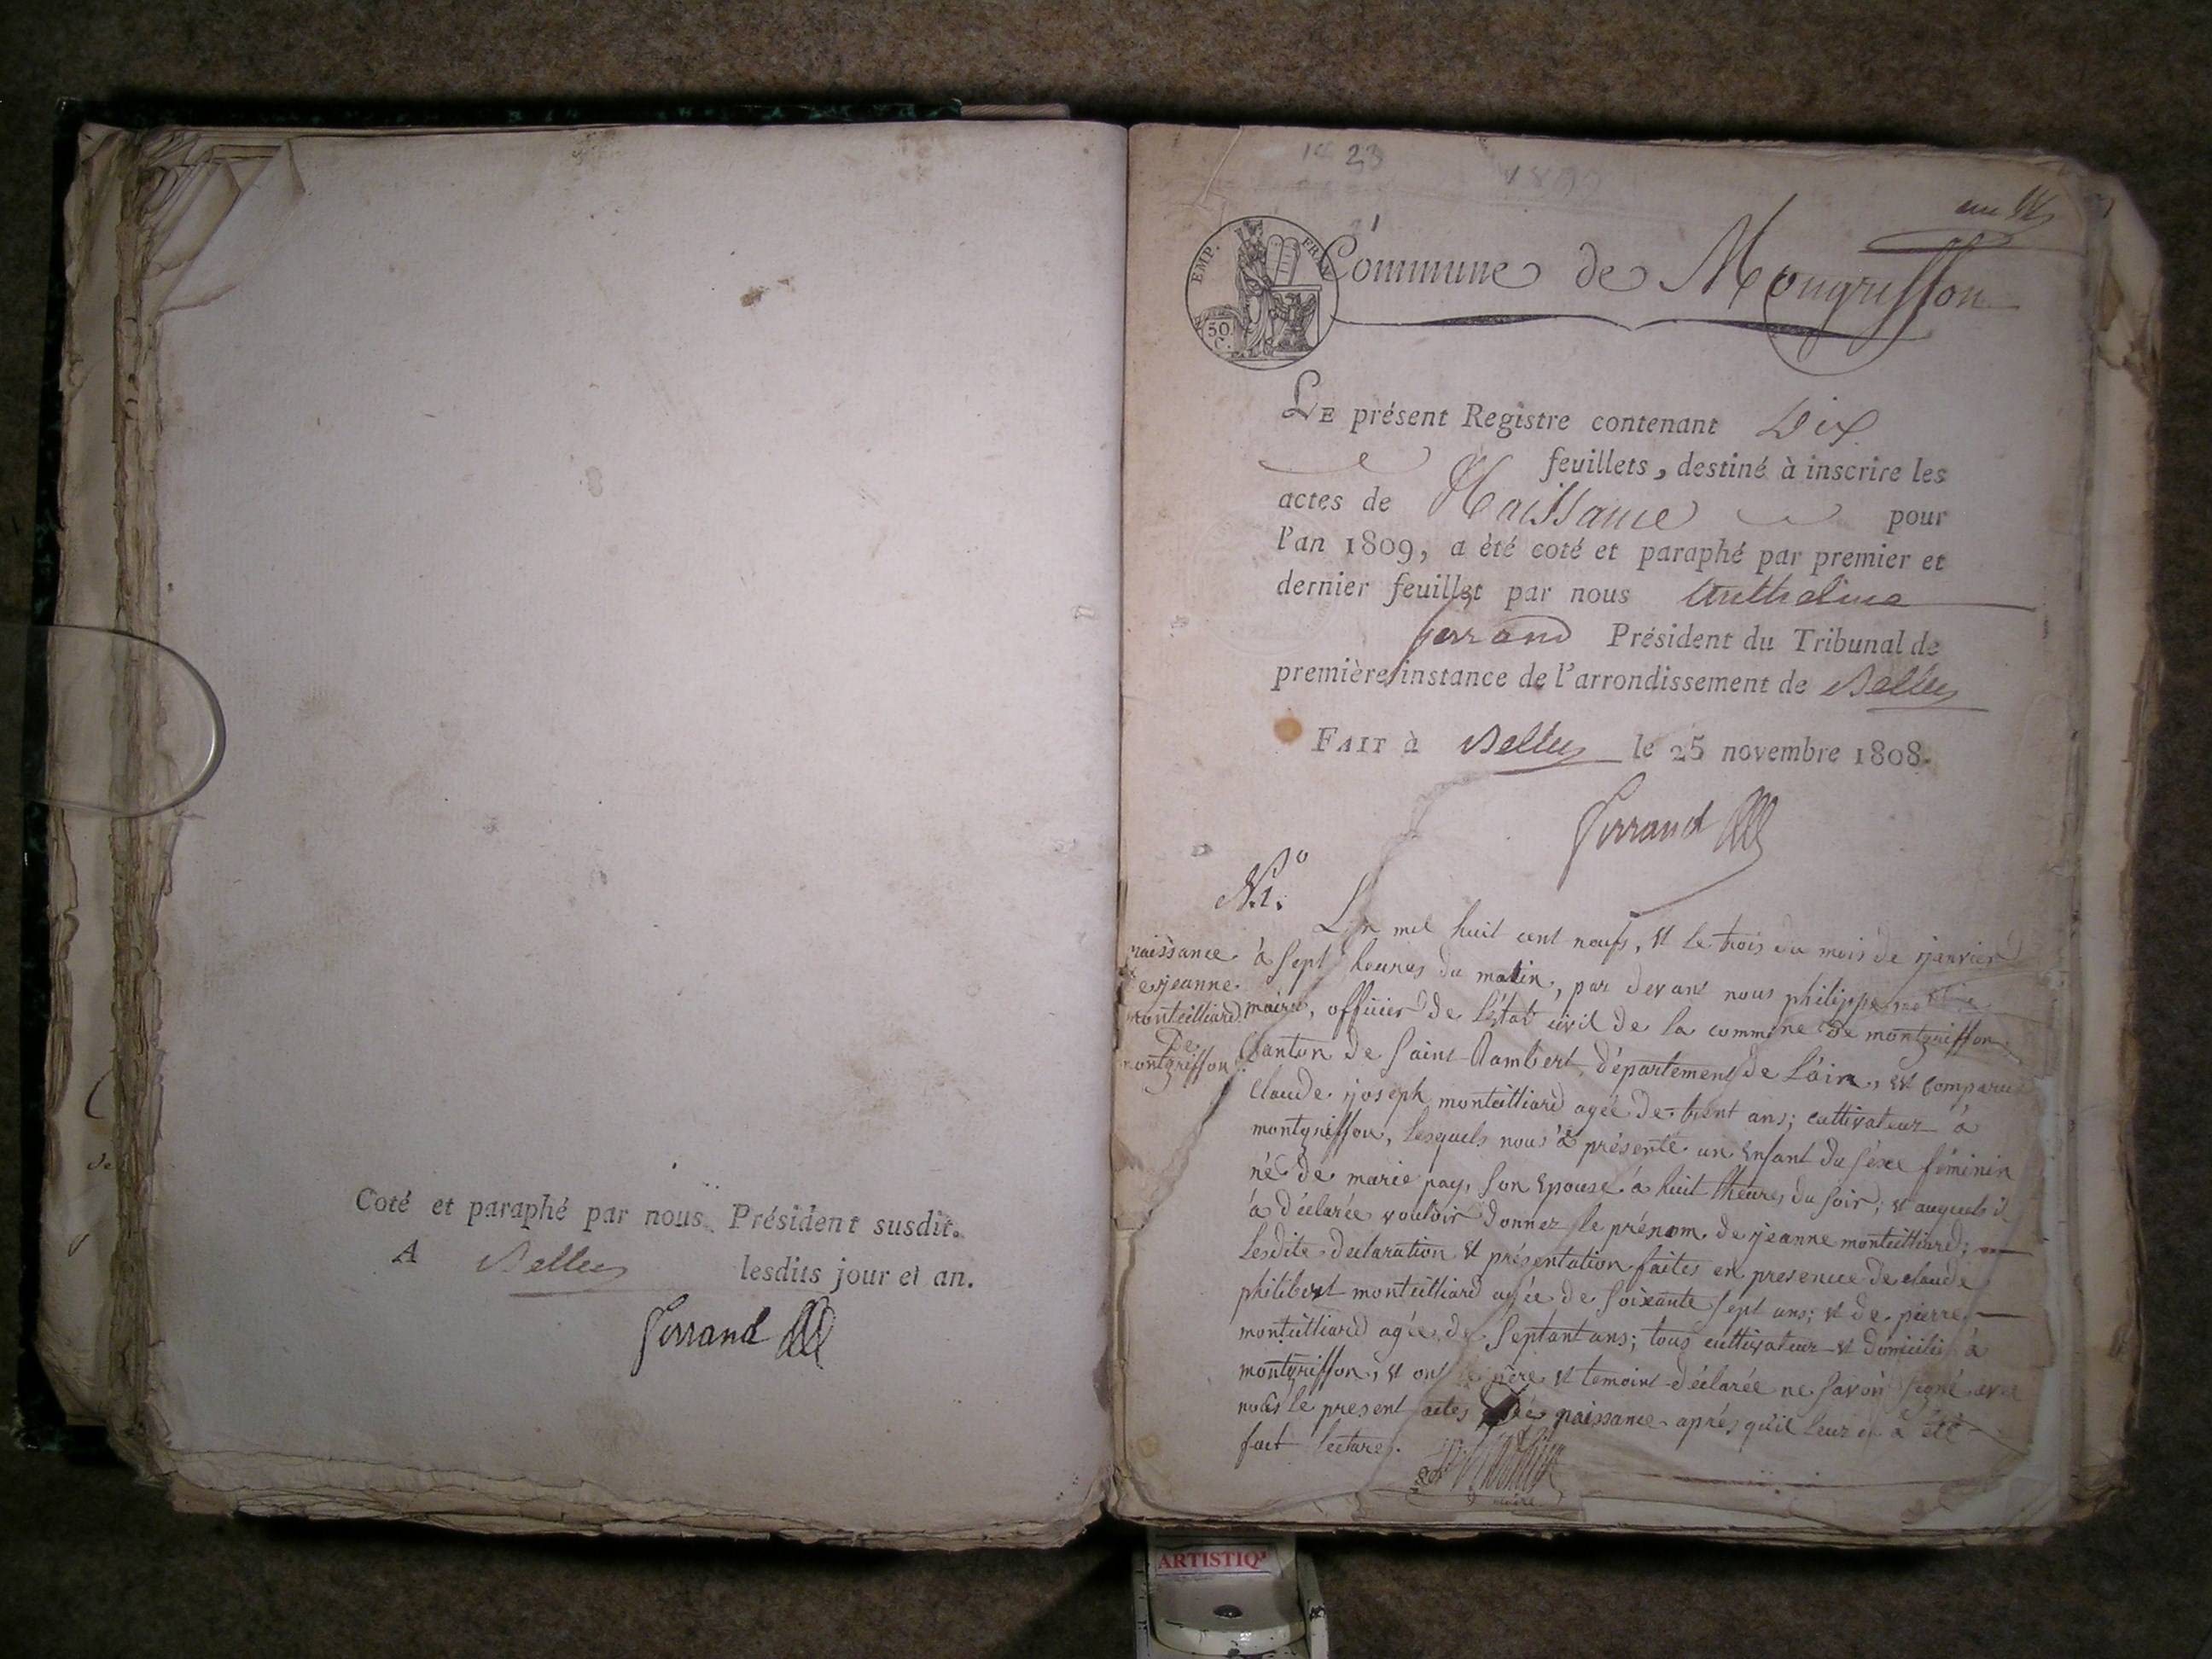 Coté et paraphé par nous Président susdit.
A Belley lesdits jour et an.
Ferrand
23
1809
EMP. FRAN
50
C.
Commune de Mongriffon
LE présent Registre contenant Dix
feuillets, destiné à inscrire les
actes de Naissance pour
l'an 1809, a èté coté et paraphé par premier et
dernier feuillet par nous Anthelme
ferrand Président du Tribunal de
première instance de l'arrondissement de Belley
FAIT à Belley le 25 novembre 1808.
Ferrand
N.º 1.
naissance
de jeanne
monteilliard
De
montgriffon
L'an mil huit cent neufs, et le trois du mois de janvier
à sept heures du matin, par devant nous philippe
maire, officier de L'état civil de la commune de montgriffon
Canton de Saint-Rambert, département de L'ain, est comparue
Claude joseph monteilliard agée de trent ans; cultivateur à
montgriffon, lesquels nous à présenté un enfant du séxe féminin
né de marie pay, son épouse à huit heures du soir; et auquels il
à déclarée vouloir donnez le prénom de jeanne monteilliard;
lesdite declaration et présentation faites en presence de claude
philibert monteilliard agée de soixante sept ans; et de pierre
monteilliard agée de septant ans; tous cultivateur et domicilié à
montgriffon, et ont le père et temoint déclarée ne savoir signé avec
nous le present actes de naissance après qu'il leur en à été
fait lecture.
maire
ARTISTIQ